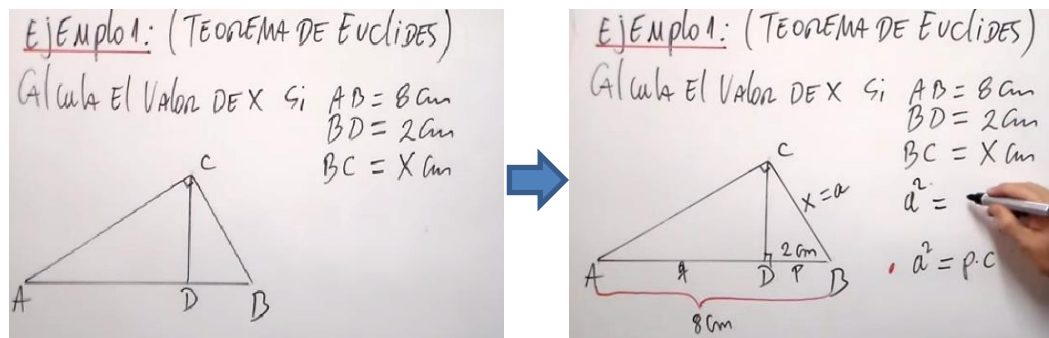 EJEMPLO 1: (TEOREMA DE EUCLIDES)
CALCULA EL VALOR DE X Si AB = 8 cm
BD = 2 cm
BC = X cm
C
A D B
EJEMPLO 1: (TEOREMA DE EUCLIDES)
CALCULA EL VALOR DE X Si AB = 8 cm
BD = 2 cm
BC = X cm
C
x = a
a² =
2 cm
A q D P B
8 cm
. a² = p.c